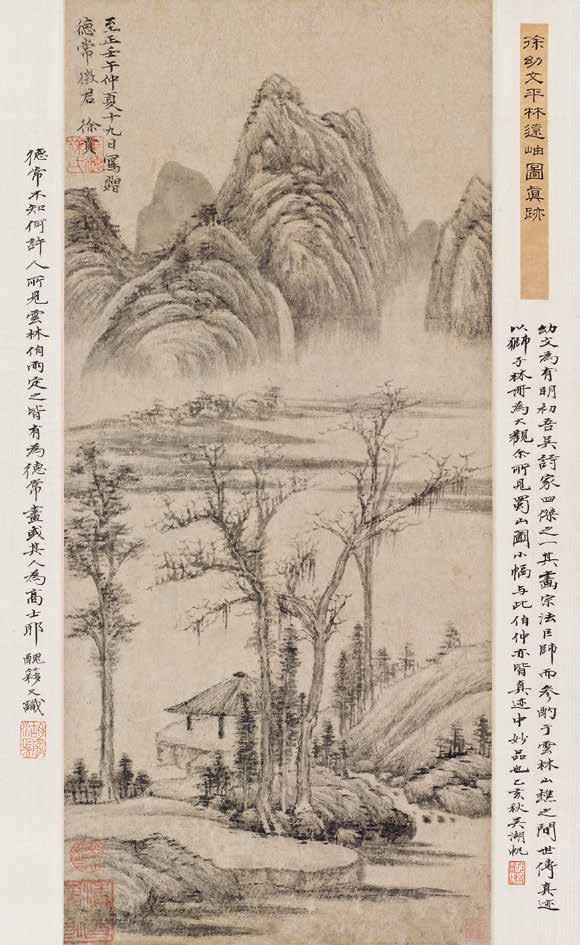 徐幼文平林遠岫圖真跡
幼文為有明初吾吳詩家四傑之一其畫宗法巨師而參酌于雲林山樵之間世傳真迹
以獅子林冊為大觀余所見蜀山圖小幅与此伯仲亦皆真迹中妙品也乙亥秋吳湖帆
至正壬午仲夏十九日寫贈
德常徵君 徐賁
德常不知何許人所見雲林伯雨定之皆有為德常畫或其人為高士耶 醜簃又識